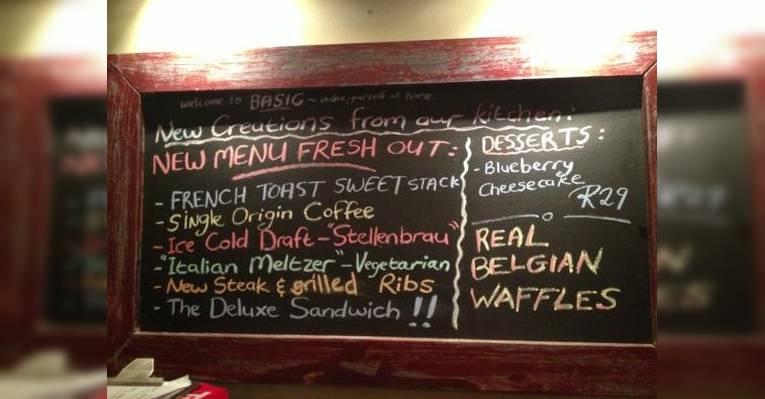 welcome to BASIC ~ make yourself at home.
New Creations from our kitchen:
NEW MENU FRESH OUT:
- FRENCH TOAST SWEET STACK
- Single Origin Coffee
- Ice Cold Draft - "Stellenbrau"
- "Italian Meltzer" - Vegetarian
- New Steak & grilled Ribs
- The Deluxe Sandwich !!
DESSERTS:
- Blueberry
Cheesecake
R29
REAL
BELGIAN
WAFFLES